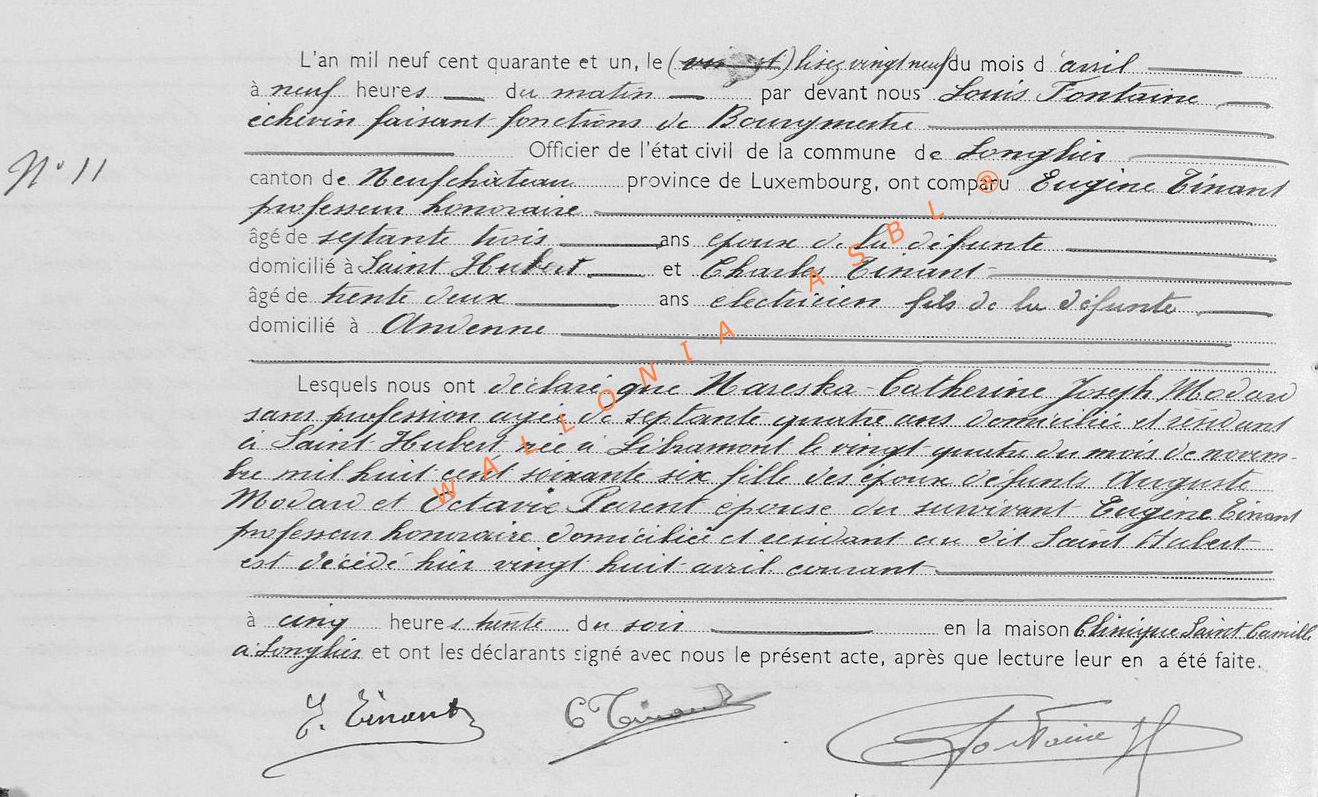 L'an mil neuf cent quarante et un, le ( ) lisez vingt neuf du mois d'avril
à neuf heures du matin par devant nous Louis Fontaine
échevin faisant fonctions de Bourgmestre
Officier de l'état civil de la commune de Longlier
N° 11
canton de Neufchâteau province de Luxembourg, ont comparu Eugène Tinant
professeur honoraire
âgé de septante trois ans époux de la défunte
domicilié à Saint Hubert et Charles Tinant
âgé de trente deux ans electricien fils de la défunte
domicilié à Andenne
Lesquels nous ont déclaré que Mareska Catherine Joseph Modard
sans profession agée de septante quatre ans domiciliée et résidant
à Saint Hubert née à Libramont le vingt quatre du mois de novem-
bre mil huit cent soixante six fille des époux défunts Auguste
Modard et Octavie Parent épouse du survivant Eugène Tinant
professeur honoraire domiciliée et résidant au dit Saint Hubert
est décédé hier vingt huit avril courant
à cinq heures trente du soir en la maison Clinique Saint Camille
à Longlier et ont les déclarants signé avec nous le présent acte, après que lecture leur en a été faite.
E. Tinant C Tinant Fontaine
WALLONIA ASBL ®